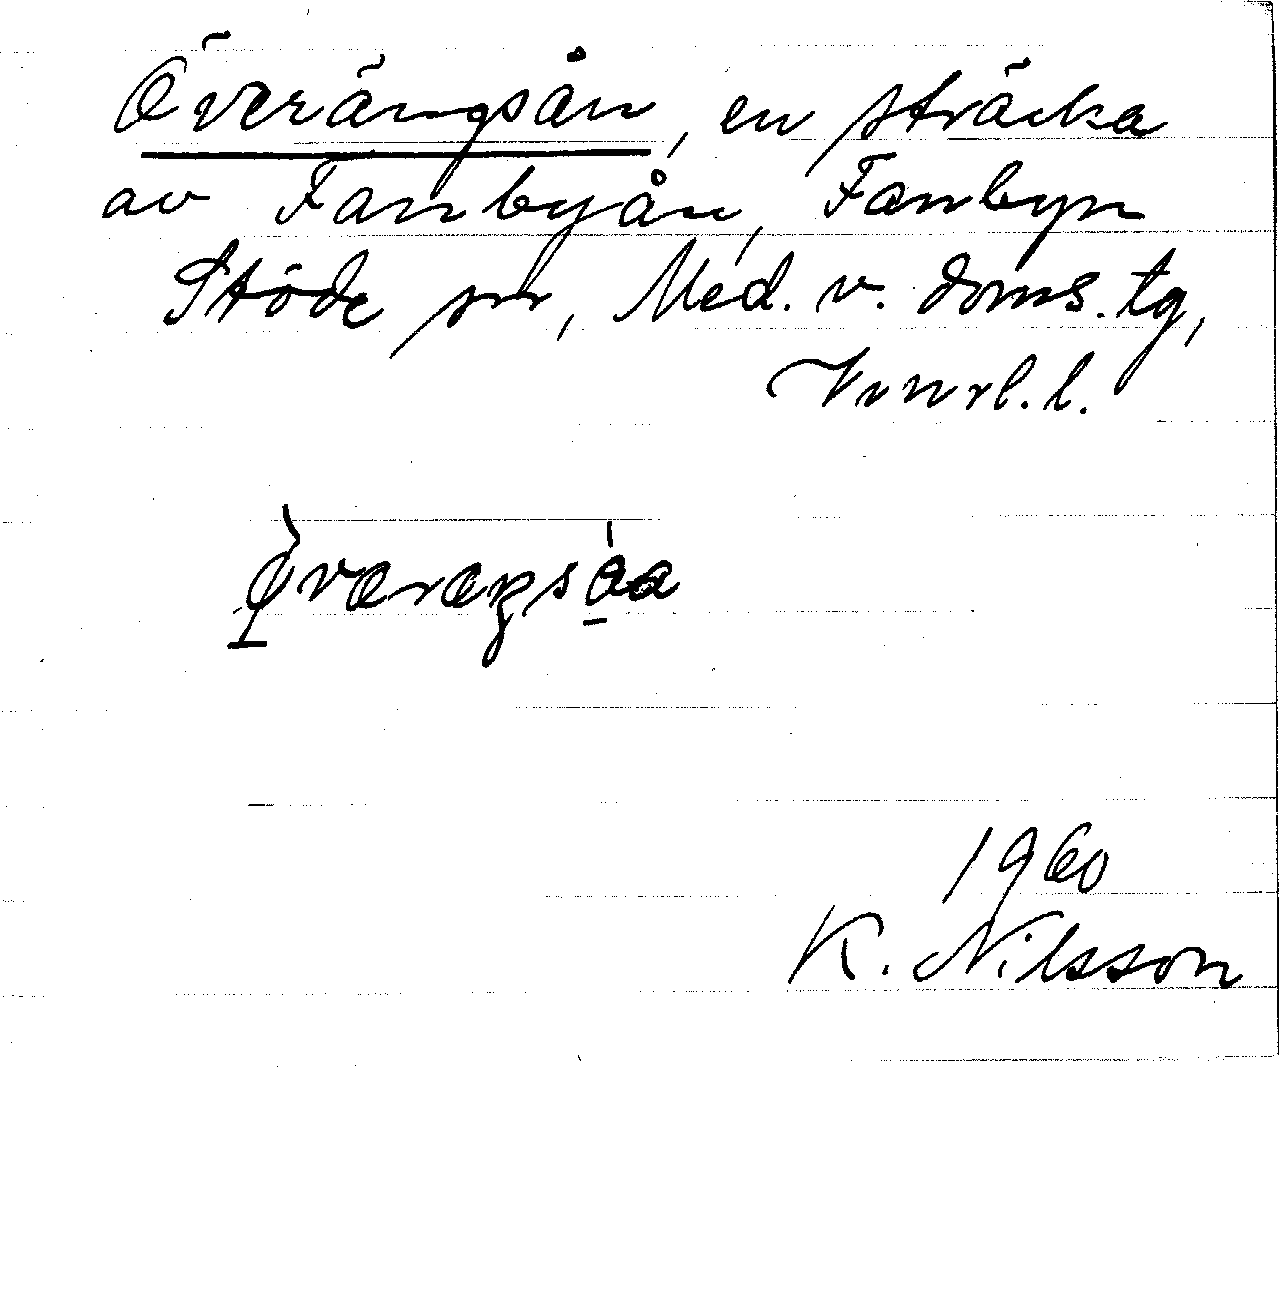 Överängsån, en sträcka
av Fanbyån, Fanbyn
Stöde sn, Med. v. doms. tg,
Vnrl. l.
1960
K. Nilsson